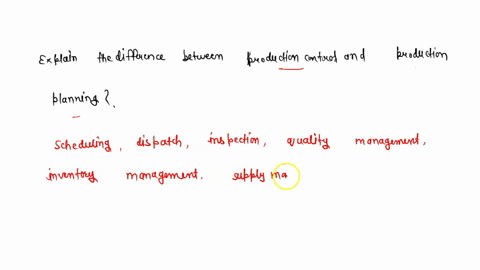 Explain the difference between production control and production
planning?.
Scheduling, dispatch, inspection, quality management,
inventory management. supply ma